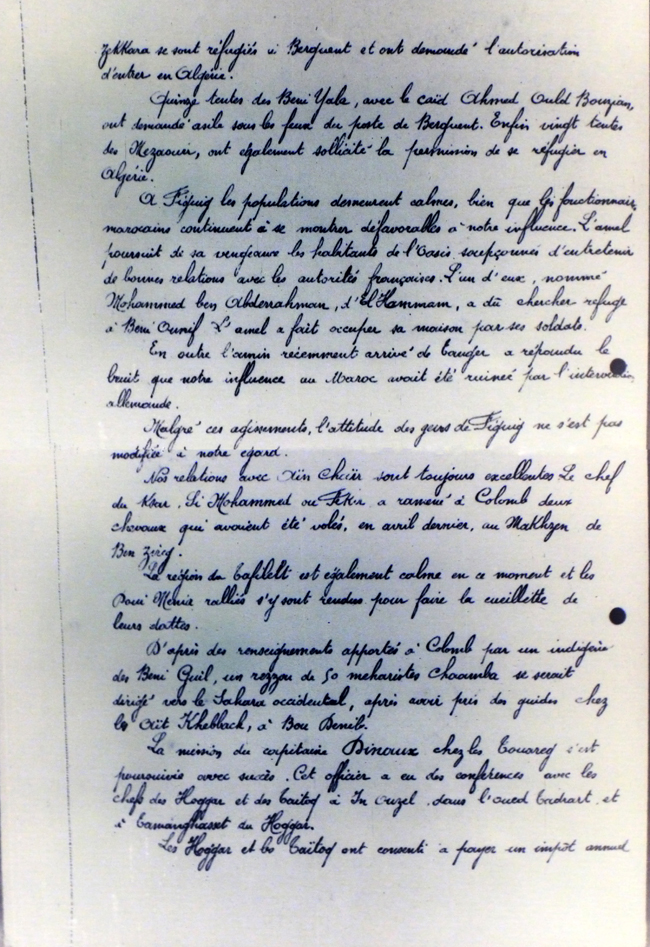 Zekkara se sont réfugiés à Berguent et ont demandé l'autorisation
d'entrer en Algérie.
Quinze tentes des Beni Yala, avec le caïd Ahmed Ould Bouzian,
ont demandé asile sous les feux du poste de Berguent. Enfin vingt tentes
des Mezaouir, ont également sollicité la permission de se réfugier en
Algérie.
A Figuig les populations demeurent calmes, bien que les fonctionnaires
marocains continuent à se montrer défavorables à notre influence. L'amel
poursuit de sa vengeance les habitants de l'Oasis soupçonnés d'entretenir
de bonnes relations avec les autorités françaises. L'un d'eux, nommé
Mohammed ben Abderrahman, d'El Hammam, a dû chercher refuge
à Beni Ounif. L'amel a fait occuper sa maison par ses soldats.
En outre l'amin récemment arrivé de Tanger a répandu le
bruit que notre influence au Maroc avait été ruinée par l'intervention
allemande.
Malgré ces agissements, l'attitude des gens de Figuig ne s'est pas
modifiée à notre égard.
Nos relations avec Aïn Chaïr sont toujours excellentes. Le chef
du Ksar, Si Mohammed ou Fekir a ramené à Colomb deux
chevaux qui avaient été volés, en avril dernier, au Makhzen de
Ben Zireg.
La région du Tafilelt est également calme en ce moment et les
Doui Menia ralliés s'y sont rendus pour faire la cueillette de
leurs dattes.
D'après des renseignements apportés à Colomb par un indigène
des Beni Guil, un rezzou de 50 meharistes Chaamba se serait
dirigé vers le Sahara occidental, après avoir pris des guides chez
les Aït Khebbach, à Bou Denib.
La mission du capitaine Dinaux chez les Touareg s'est
poursuivie avec succès. Cet officier a eu des conférences avec les
chefs des Hoggar et des Taïtoq à In Ouzel, dans l'oued Tadrart, et
à Tamanghasset du Hoggar.
Les Hoggar et les Taïtoq ont consenti à payer un impôt annuel